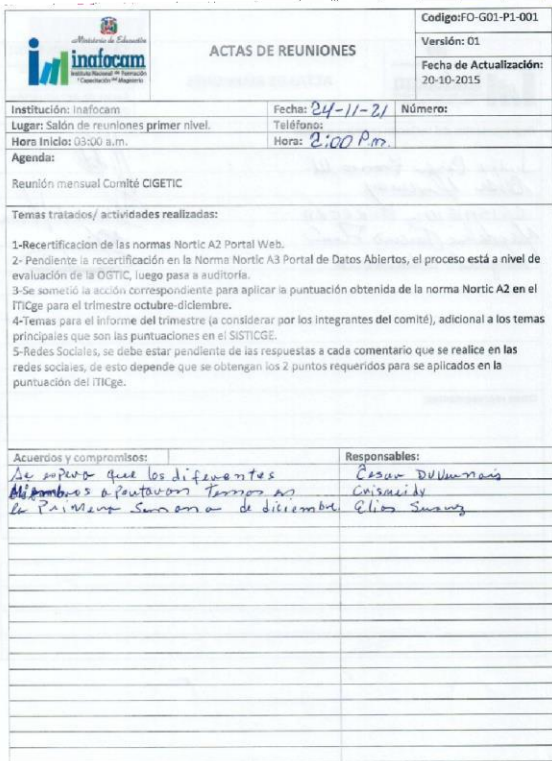 Ministerio de Educación
inafocam
Instituto Nacional de Formación
y Capacitación del Magisterio
ACTAS DE REUNIONES
Codigo:FO-G01-P1-001
Versión: 01
Fecha de Actualización:
20-10-2015
Institución: Inafocam
Fecha: 24-11-21
Número:
Lugar: Salón de reuniones primer nivel.
Teléfono:
Hora Inicio: 03:00 a.m.
Hora: 2:00 P.m.
Agenda:
Reunión mensual Comité CIGETIC
Temas tratados/ actividades realizadas:
1-Recertificacion de las normas Nortic A2 Portal Web.
2- Pendiente la recertificación en la Norma Nortic A3 Portal de Datos Abiertos, el proceso está a nivel de
evaluación de la OGTIC, luego pasa a auditoría.
3-Se sometió la acción correspondiente para aplicar la puntuación obtenida de la norma Nortic A2 en el
iTICge para el trimestre octubre-diciembre.
4-Temas para el informe del trimestre (a considerar por los integrantes del comité), adicional a los temas
principales que son las puntuaciones en el SISTICGE.
5-Redes Sociales, se debe estar pendiente de las respuestas a cada comentario que se realice en las
redes sociales, de esto depende que se obtengan los 2 puntos requeridos para se aplicados en la
puntuación del iTICge.
Acuerdos y compromisos:
Responsables:
Se espera que los diferentes
Cesar
miembros
Crismeidy
la Primera Semana de diciembre
Elias